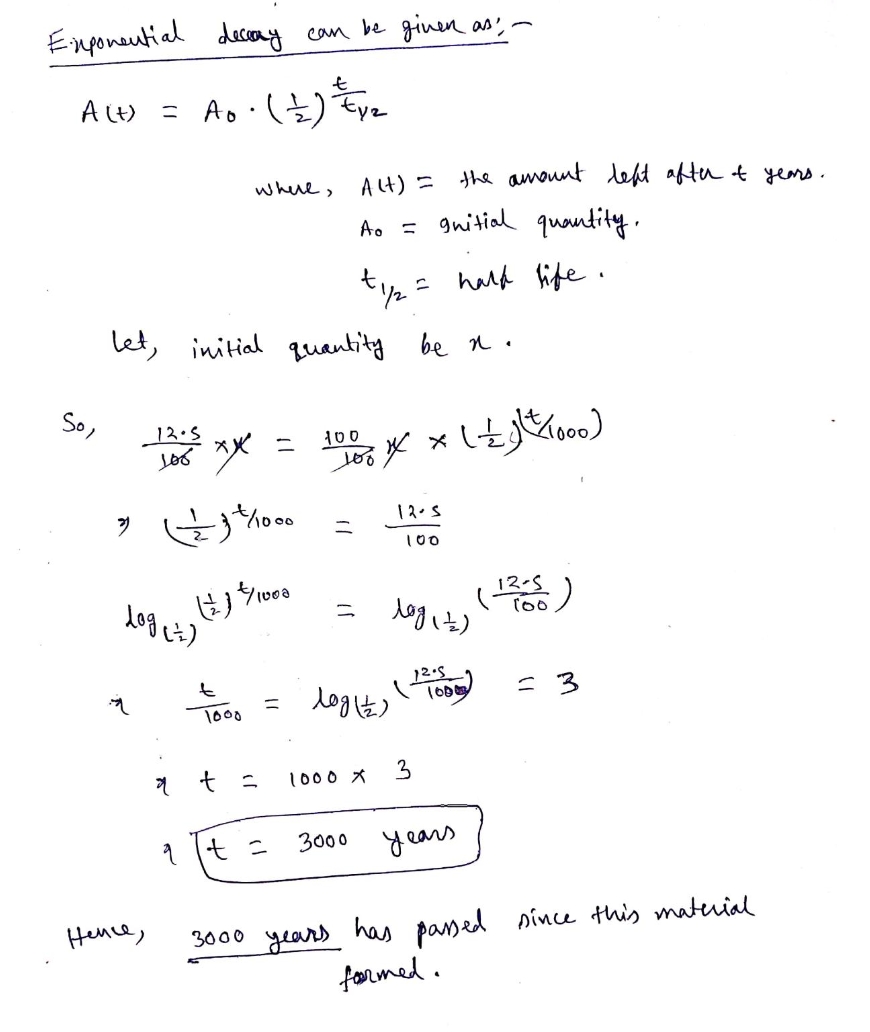 Exponential decay can be given as:-
A(t) = A0 · (1/2)^(t/t1/2)
where, A(t) = the amount left after t years.
A0 = initial quantity.
t1/2 = half life.
let, initial quantity be x.
So, 12.5/100 × x = 100/100 x × (1/2)^(t/1000)
⇒ (1/2)^(t/1000) = 12.5/100
log(1/2) (1/2)^(t/1000) = log(1/2) (12.5/100)
⇒ t/1000 = log(1/2) (12.5/100) = 3
⇒ t = 1000 × 3
⇒ t = 3000 years
Hence, 3000 years has passed since this material
formed.